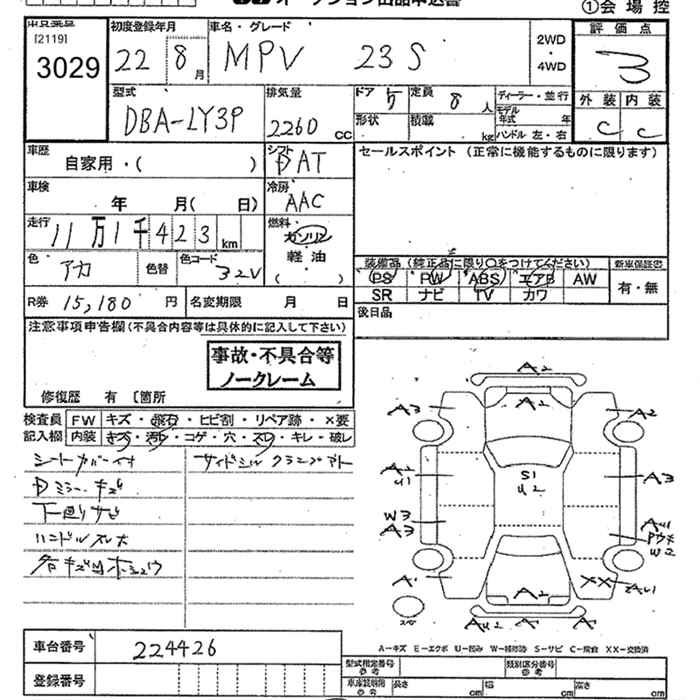 オークション出品申込書
①会場控
[2119]
3029
初度登録年月
22 8月
車名・グレード
MPV 23S
2WD
・
4WD
評価点
3
外装 内装
C C
型式
DBA-LY3P
排気量
2260 cc
ドア 5
定員 8人
形状
積載 kg
ディーラー・並行
モデル年式 年
ハンドル 左・右
車歴
自家用・( )
シフト
DAT
セールスポイント (正常に機能するものに限ります)
車検
年 月( 日)
冷房
AAC
走行
11万1千423km
燃料
ガソリン
軽油
( )
色
アカ
色替
色コード
32V
装備品 (純正品に限り○をつけてください)
新車保証書
PS PW ABS エアB AW
SR ナビ TV カワ
有・無
R券 15,180円
名変期限 月 日
後日品
注意事項申告欄(不具合内容等は具体的に記入して下さい)
事故・不具合等
ノークレーム
修復歴 有 〔箇所
検査員 FW キズ・飛石・ヒビ割・リペア跡・×要
記入欄 内装 キズ・汚れ・コゲ・穴・スレ・キレ・破レ
シートカバー付
サイドシル クランプアト
Dミラーキズ
下回りサビ
ハンドルスレ大
A2
A2
A3
A2
A2
U1
S1
U2
A3
W3
A3
W2
A1
A2
XX
A2
A-キズ E-エクボ U-凹み W-補修跡 S-サビ C-腐食 XX-交換済
車台番号 224426
登録番号
型式指定番号
参考
類別区分番号
参考
車庫証明用
参考
長さ cm
幅 cm
高さ cm